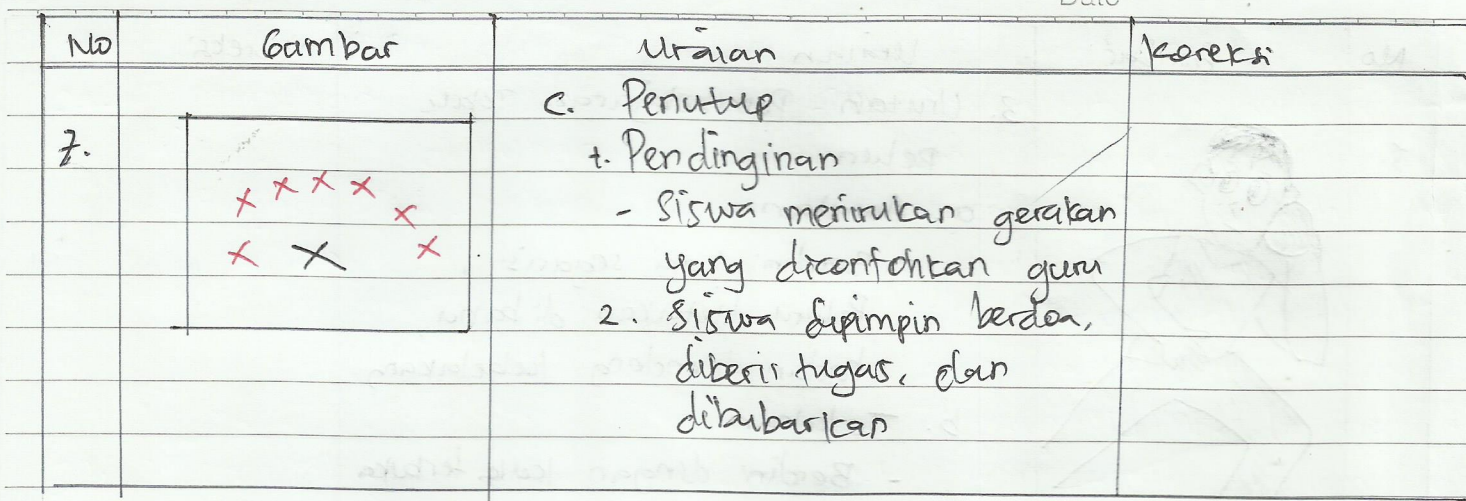 No Gambar Uraian Koreksi
C. Penutup
7.
1. Pendinginan
- Siswa menirukan gerakan
yang dicontohkan guru
2. Siswa dipimpin berdoa,
diberii tugas, dan
dibubarkan